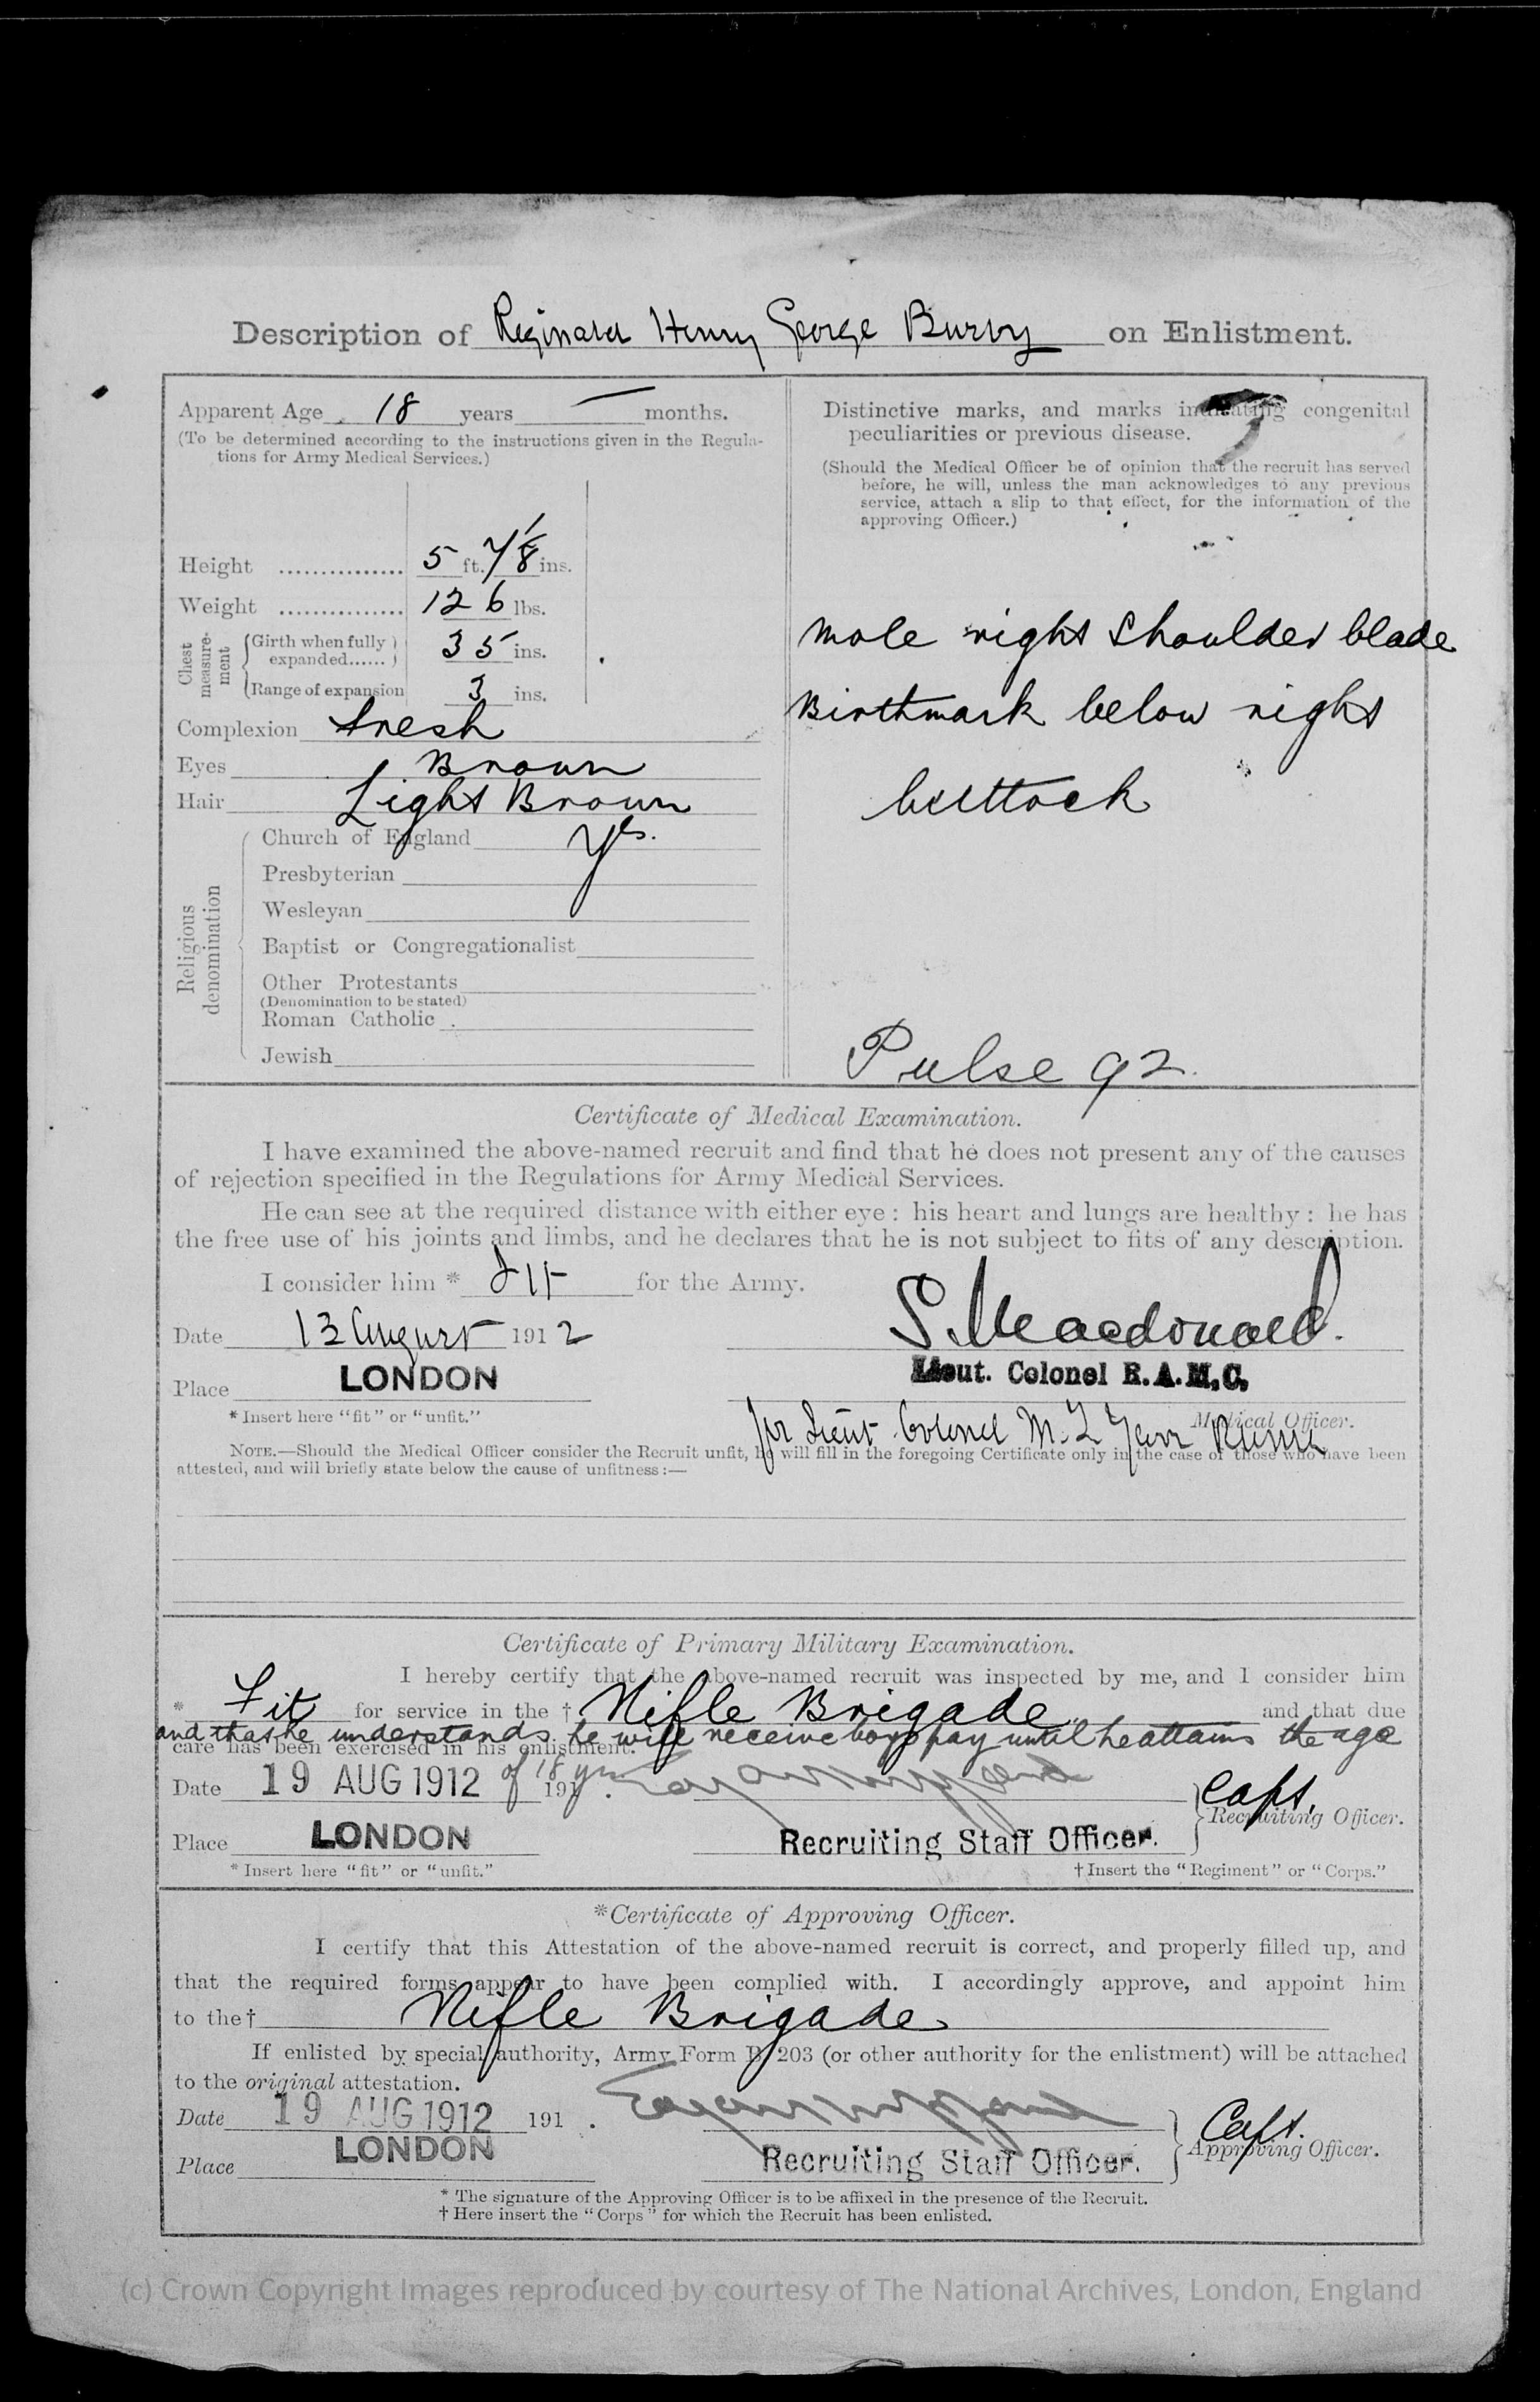 Description of Reginald Henry George Burby on Enlistment.
Apparent Age 18 years — months.
(To be determined according to the instructions given in the Regula-
tions for Army Medical Services.)
Height ............... 5 ft. 7 1/8 ins.
Weight ............... 126 lbs.
Chest measure-ment
Girth when fully
expanded...... 35 ins.
Range of expansion 3 ins.
Complexion fresh
Eyes Brown
Hair Light Brown
Religious denomination
Church of England yes.
Presbyterian
Wesleyan
Baptist or Congregationalist
Other Protestants
(Denomination to be stated)
Roman Catholic
Jewish
Distinctive marks, and marks indicating congenital
peculiarities or previous disease.
(Should the Medical Officer be of opinion that the recruit has served
before, he will, unless the man acknowledges to any previous
service, attach a slip to that effect, for the information of the
approving Officer.)
mole right shoulder blade
Birthmark below right
buttock
Pulse 92.
Certificate of Medical Examination.
I have examined the above-named recruit and find that he does not present any of the causes
of rejection specified in the Regulations for Army Medical Services.
He can see at the required distance with either eye : his heart and lungs are healthy : he has
the free use of his joints and limbs, and he declares that he is not subject to fits of any description.
I consider him * fit for the Army.
S. Macdonald.
Date 13 August 1912
Lieut. Colonel R.A.M.C.
Place LONDON
Medical Officer.
* Insert here "fit" or "unfit."
for Lieut Colonel M. T. Yarr RAMC
NOTE.—Should the Medical Officer consider the Recruit unfit, he will fill in the foregoing Certificate only in the case of those who have been
attested, and will briefly state below the cause of unfitness :—
Certificate of Primary Military Examination.
I hereby certify that the above-named recruit was inspected by me, and I consider him
* Fit for service in the † Rifle Brigade and that due
and that he understands he will receive boys pay until he attains the age
care has been exercised in his enlistment.
of 18 yrs
Date 19 AUG 1912 191 .
Capt.
Recruiting Officer.
Place LONDON
Recruiting Staff Officer.
* Insert here "fit" or "unfit."
† Insert the "Regiment" or "Corps."
*Certificate of Approving Officer.
I certify that this Attestation of the above-named recruit is correct, and properly filled up, and
that the required forms appear to have been complied with. I accordingly approve, and appoint him
to the† Rifle Brigade
If enlisted by special authority, Army Form B. 203 (or other authority for the enlistment) will be attached
to the original attestation.
Date 19 AUG 1912 191 .
Capt.
Approving Officer.
Place LONDON
Recruiting Staff Officer.
* The signature of the Approving Officer is to be affixed in the presence of the Recruit.
† Here insert the "Corps" for which the Recruit has been enlisted.
(c) Crown Copyright Images reproduced by courtesy of The National Archives, London, England